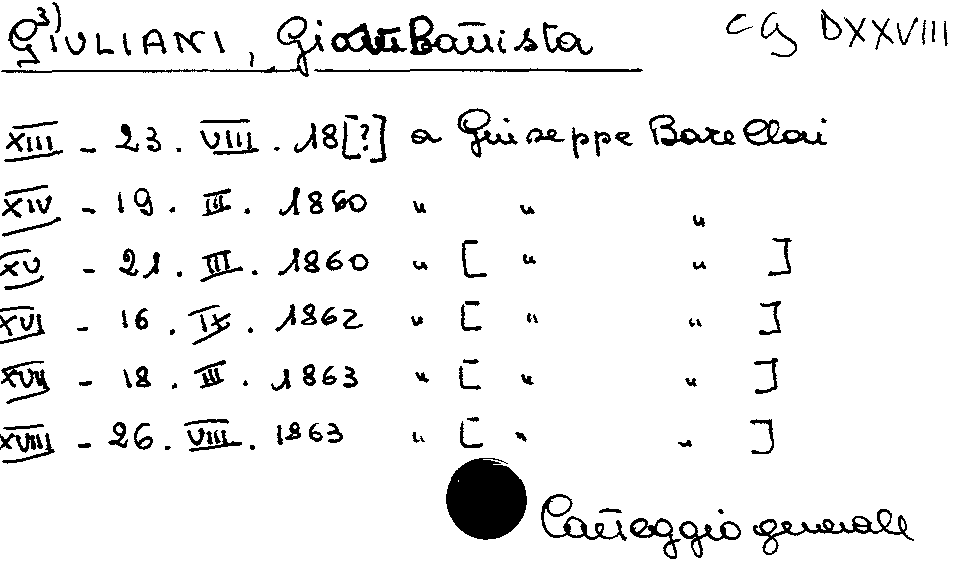 3)
GIULIANI, Giambattista CG DXXVIII
XIII - 23. VIII. 18[?] a Giuseppe Barellai
XIV - 19. III. 1860 " " "
XV - 21. III. 1860 " [ " " ]
XVI - 16. IX. 1862 " [ " " ]
XVII - 18. III. 1863 " [ " " ]
XVIII - 26. VIII. 1863 " [ " " ]
Carteggio generale